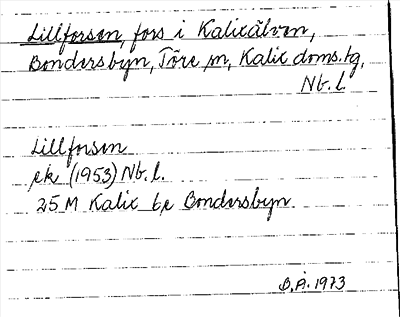 Lillforsen, fors i Kalixälven,
Bondersbyn, Töre sn, Kalix doms.tg,
Nb. l.
Lillforsen
ek (1953) Nb. l.
25 M Kalix be Bondersbyn
B.Å. 1973